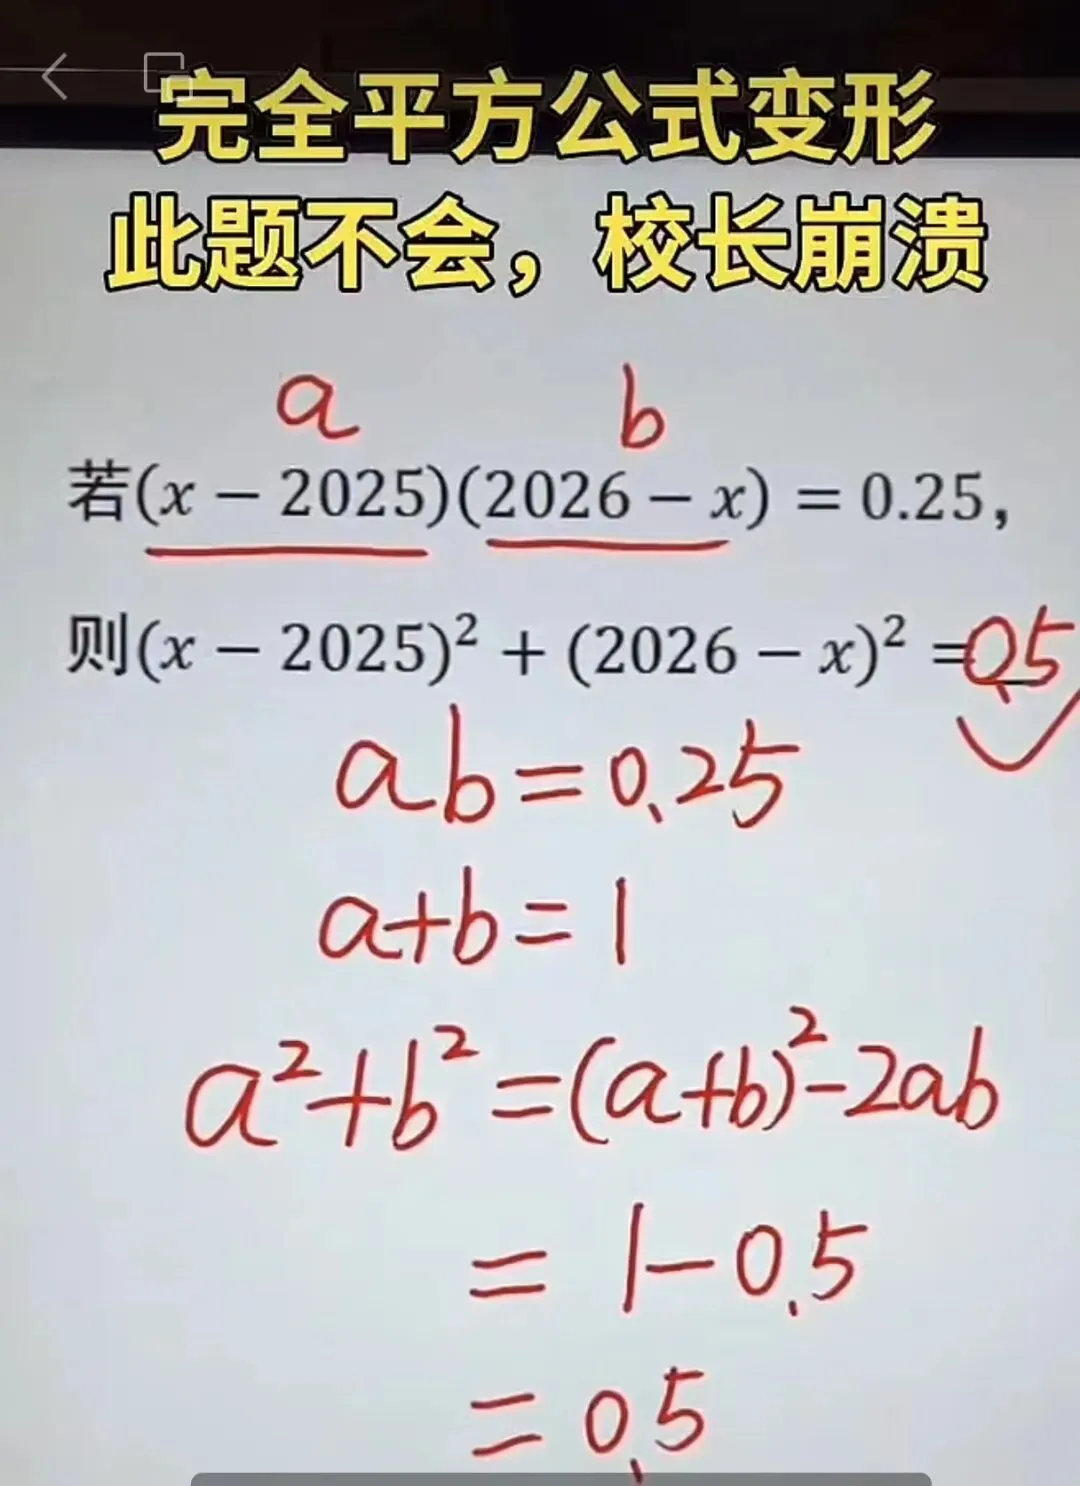 完全平方公式变形
此题不会，校长崩溃
a b
若(x − 2025)(2026 − x) = 0.25，
则(x − 2025)² + (2026 − x)² = 0.5
ab = 0.25
a+b = 1
a²+b² = (a+b)²-2ab
= 1-0.5
= 0.5